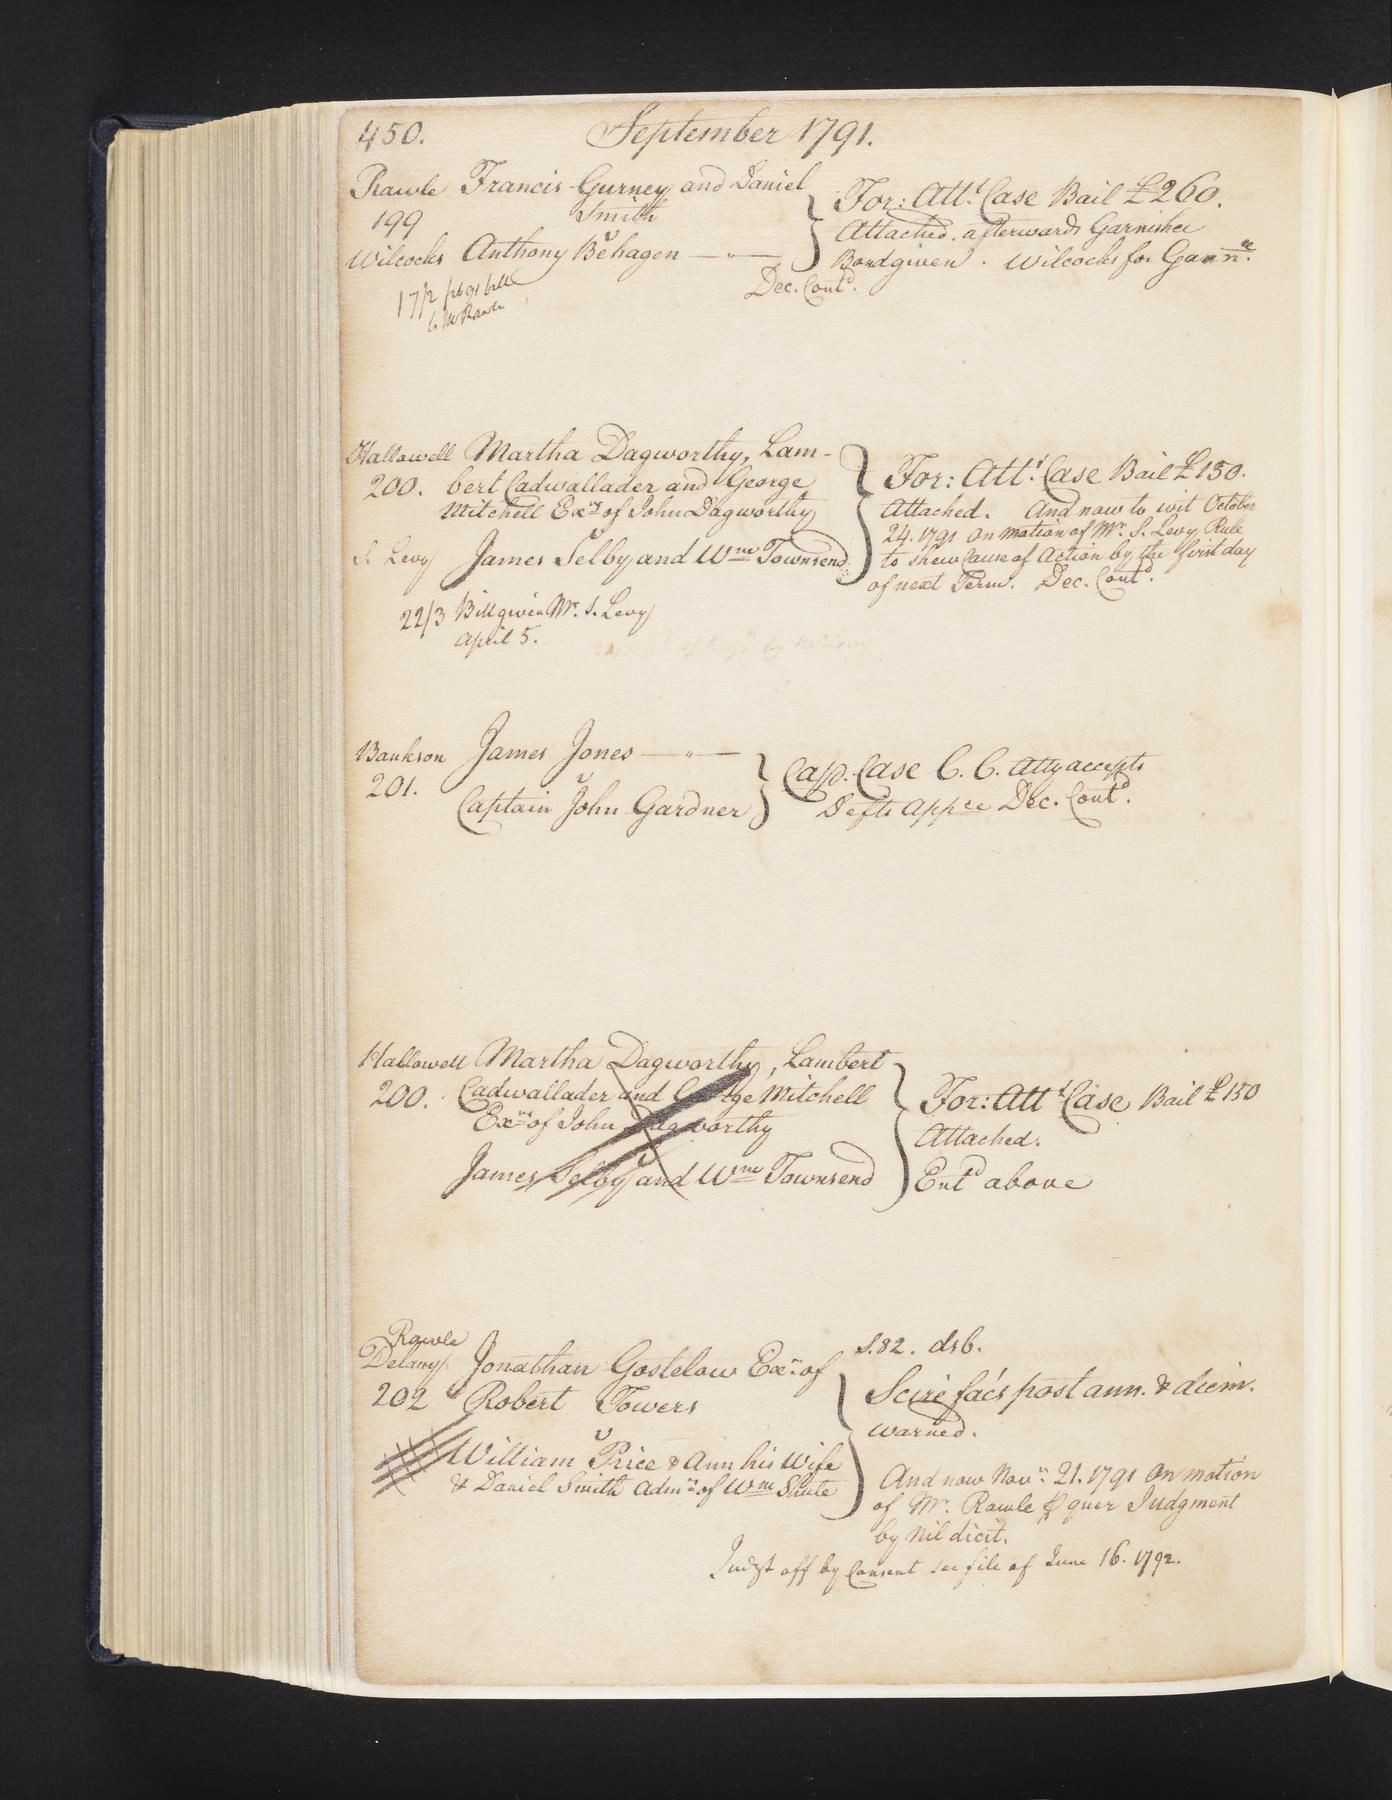 450. September 1791.
Rawle Francis Gurney and Daniel
199 Smith
v
Wilcocks Anthony Behagen
For: Attt. Case Bail £260.
Attached. afterwards Garnishee
Bond given. Wilcocks for Garnee.
Dec. Contd.
17/2
to Mr Rawle
Hallowell Martha Dagworthy, Lam-
200. bert Cadwallader and George
Mitchell Exrs of John Dagworthy
v
S. Levy James Selby and Wm Townsend
For: Attt. Case Bail £150.
Attached. And now to wit October
24. 1791 On motion of Mr. S. Levy Rule
to shew Cause of Action by the first day
of next Term. Dec. Contd.
22/3 Bill given Mr. S. Levy
April 5.
Bankson James Jones
201. v
Captain John Gardner
Cap. Case C. C. Atty accepts
Defts Appce Dec. Contd.
Hallowell Martha Dagworthy, Lambert
200. Cadwallader and George Mitchell
Exrs of John Dagworthy
v
James Selby and Wm Townsend
For: Attt Case Bail £150
Attached.
Entd above
Rawle
Delany Jonathan Gostelow Exr. of
202 Robert Towers
v
William Price & Ann his Wife
& Daniel Smith Admrs of Wm Shute
S.82. dsb.
Scire facs post ann. & diem.
warned.
And now Novr. 21. 1791 On motion
of Mr. Rawle p quer Judgment
by Nil dicit.
Judgt off by Consent see file of June 16. 1792.